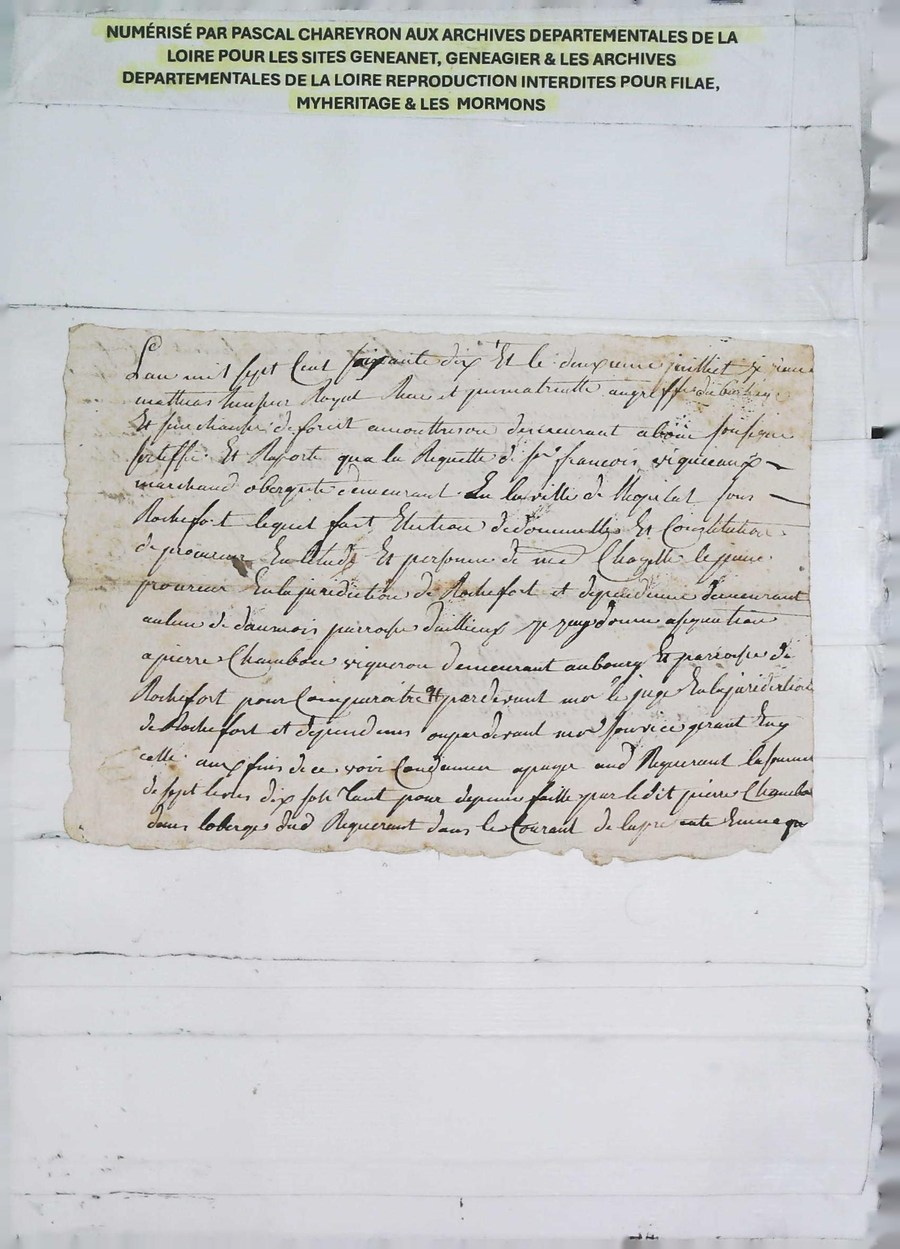 NUMÉRISÉ PAR PASCAL CHAREYRON AUX ARCHIVES DEPARTEMENTALES DE LA
LOIRE POUR LES SITES GENEANET, GENEAGIER & LES ARCHIVES
DEPARTEMENTALES DE LA LOIRE REPRODUCTION INTERDITES POUR FILAE,
MYHERITAGE & LES MORMONS
Lan mil sept Cent soixante dix Et le deuxieme juilliet
mathias huissier Royal Recu et jmmatriculle augreffe du
Et senechausse de forest amontbrison demeurant aboin sousigne
sertiffie Et Raporte qua la Requette de sr francois vigneaux
marchand obergiste demeurant En la ville de lhopital sous
Rochefort lequel fait Election de domicille Et Constitution
de procureur En letude Et personne de me Chazelle le jeune
procureur En la jurediction de Rochefort et dependence demeurant
aulieu de daumois parroisse dailлieux jay donne assignation
apierre Chambon vigneron demeurant aubourg Et parroisse de
Rochefort pour Comparoitre pardevant mor le juge En la jurediction
de Rochefort et dependences oupardevant mor son vice gerant En
celle aux fins de ce voir Condanner apayer aud Requerant la somme
de sept livres dix sols tant pour depence faitte par ledit pierre Chambon
dans loberge dud Requerant dans le Courant de la presente annee